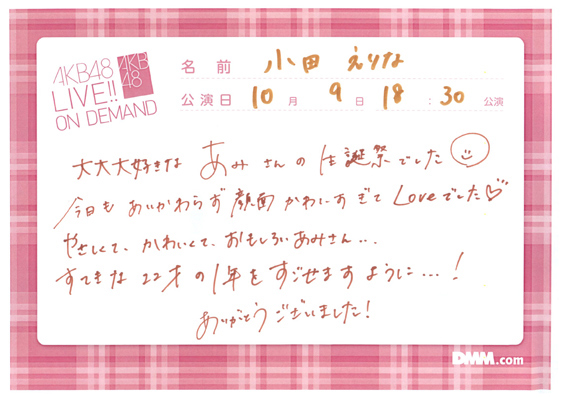 AKB48
LIVE!!
ON DEMAND
AKB
48
名前 小田 えりな
公演日 10月 9日 18:30 公演
大大大好きな あみさんの生誕祭でした
今日も あいかわらず 顔面 かわいすぎて Loveでした♡
やさしくて、かわいくて、おもしろいあみさん...
すてきな 22才の1年をすごせますように...!
ありがとうございました!
DMM.com